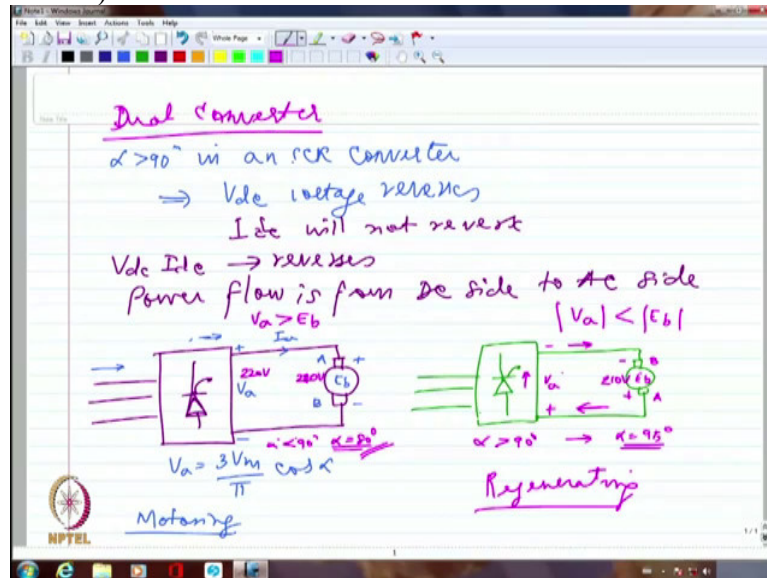 Note1 - Windows Journal
File Edit View Insert Actions Tools Help
Whole Page
Note Title
Dual Converter
α>90° in an SCR converter
⇒ Vdc voltage reverses
Idc will not reverse
Vdc Idc → reverses
Power flow is from DC side to AC side
Va > Eb
|Va| < |Eb|
+ Ia A +
220V Va 210V Eb
- B -
α<90° α=80°
- - B
Va 210V Eb
+ + A
α>90° → α=95°
Va = 3Vm/π cos α
Regenerating
Motoring
NPTEL
1/1
1